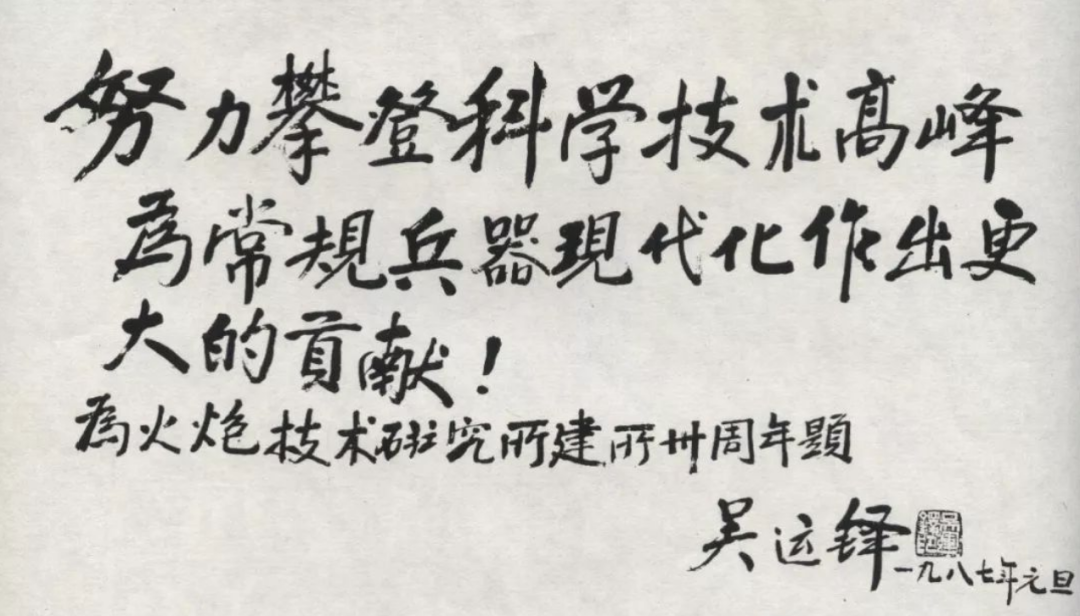 努力攀登科学技术高峰
為常規兵器現代化作出更
大的貢献！
為火炮技术研究所建所卅周年題
吴运铎
一九八七年元旦